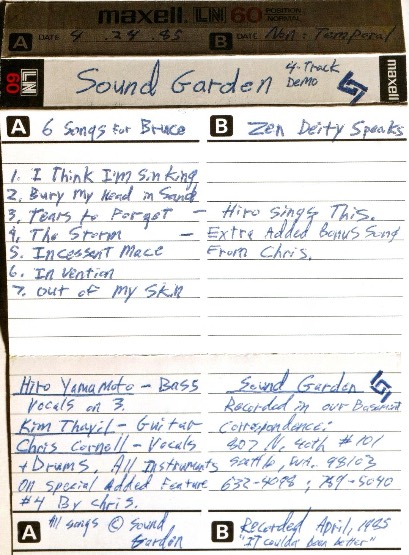 maxell. LN 60 POSITION NORMAL
A DATE 4 . 24 . 85 B DATE Non : Temporal
60 LN Sound Garden 4-Track Demo maxell
A 6 Songs for Bruce
1. I Think I'm Sinking
2. Bury My Head in Sand
3. Tears to Forget —
4. The Storm —
5. Incessant Mace
6. In Vention
7. Out of My Skin
B Zen Deity Speaks
Hiro Sings This.
Extra Added Bonus Song
From Chris.
Hiro Yamamoto - Bass
Vocals on 3.
Kim Thayil - Guitar
Chris Cornell - Vocals
+ Drums, All Instruments
On Special Added Feature
#4 By Chris.
A All Songs © Sound
Garden
Sound Garden
Recorded in our Basement
Correspondence:
Seattle, WA. 98103
B Recorded April, 1985
"IT couldn't been better"